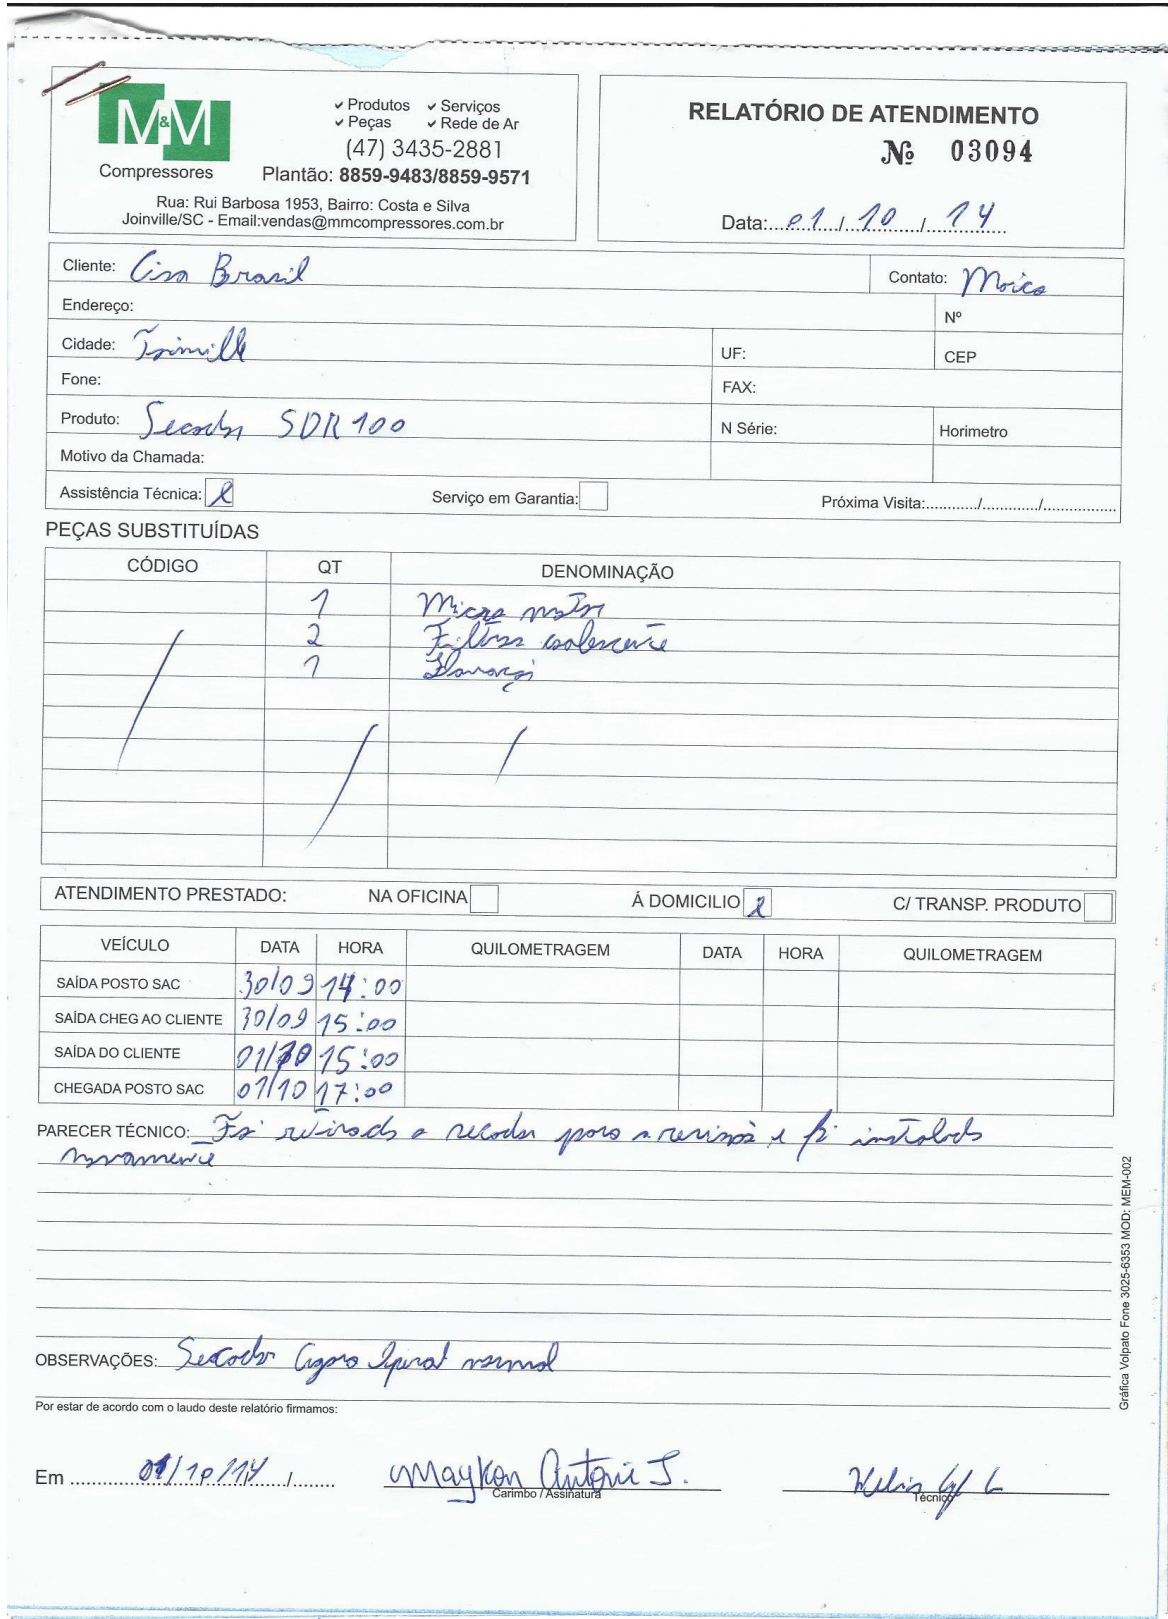 M&M
Compressores
✓ Produtos ✓ Serviços
✓ Peças ✓ Rede de Ar
(47) 3435-2881
Plantão: 8859-9483/8859-9571
Rua: Rui Barbosa 1953, Bairro: Costa e Silva
Joinville/SC - Email:vendas@mmcompressores.com.br
RELATÓRIO DE ATENDIMENTO
Nº 03094
Data: 01/10/14
Cliente: Cisa Brasil
Contato:
Endereço:
Nº
Cidade: Joinville
UF:
CEP
Fone:
FAX:
Produto: Secador SDR 100
N Série:
Horimetro
Motivo da Chamada:
Assistência Técnica: X
Serviço em Garantia:
Próxima Visita:............/............./.................
PEÇAS SUBSTITUÍDAS
CÓDIGO QT DENOMINAÇÃO
1 Micro motor
2 Filtros coalescente
1
ATENDIMENTO PRESTADO: NA OFICINA Á DOMICILIO X C/ TRANSP. PRODUTO
VEÍCULO DATA HORA QUILOMETRAGEM DATA HORA QUILOMETRAGEM
SAÍDA POSTO SAC 30/09 14:00
SAÍDA CHEG AO CLIENTE 30/09 15:00
SAÍDA DO CLIENTE 01/10 15:00
CHEGADA POSTO SAC 01/10 17:00
PARECER TÉCNICO: Foi retirado o secador para a revisão e foi instalado
novamente
OBSERVAÇÕES: Secador agora normal
Por estar de acordo com o laudo deste relatório firmamos:
Em 01/10/14
Maykon Antonio J.
Carimbo / Assinatura
Técnico
Gráfica Volpato Fone 3025-6353 MOD: MEM-002